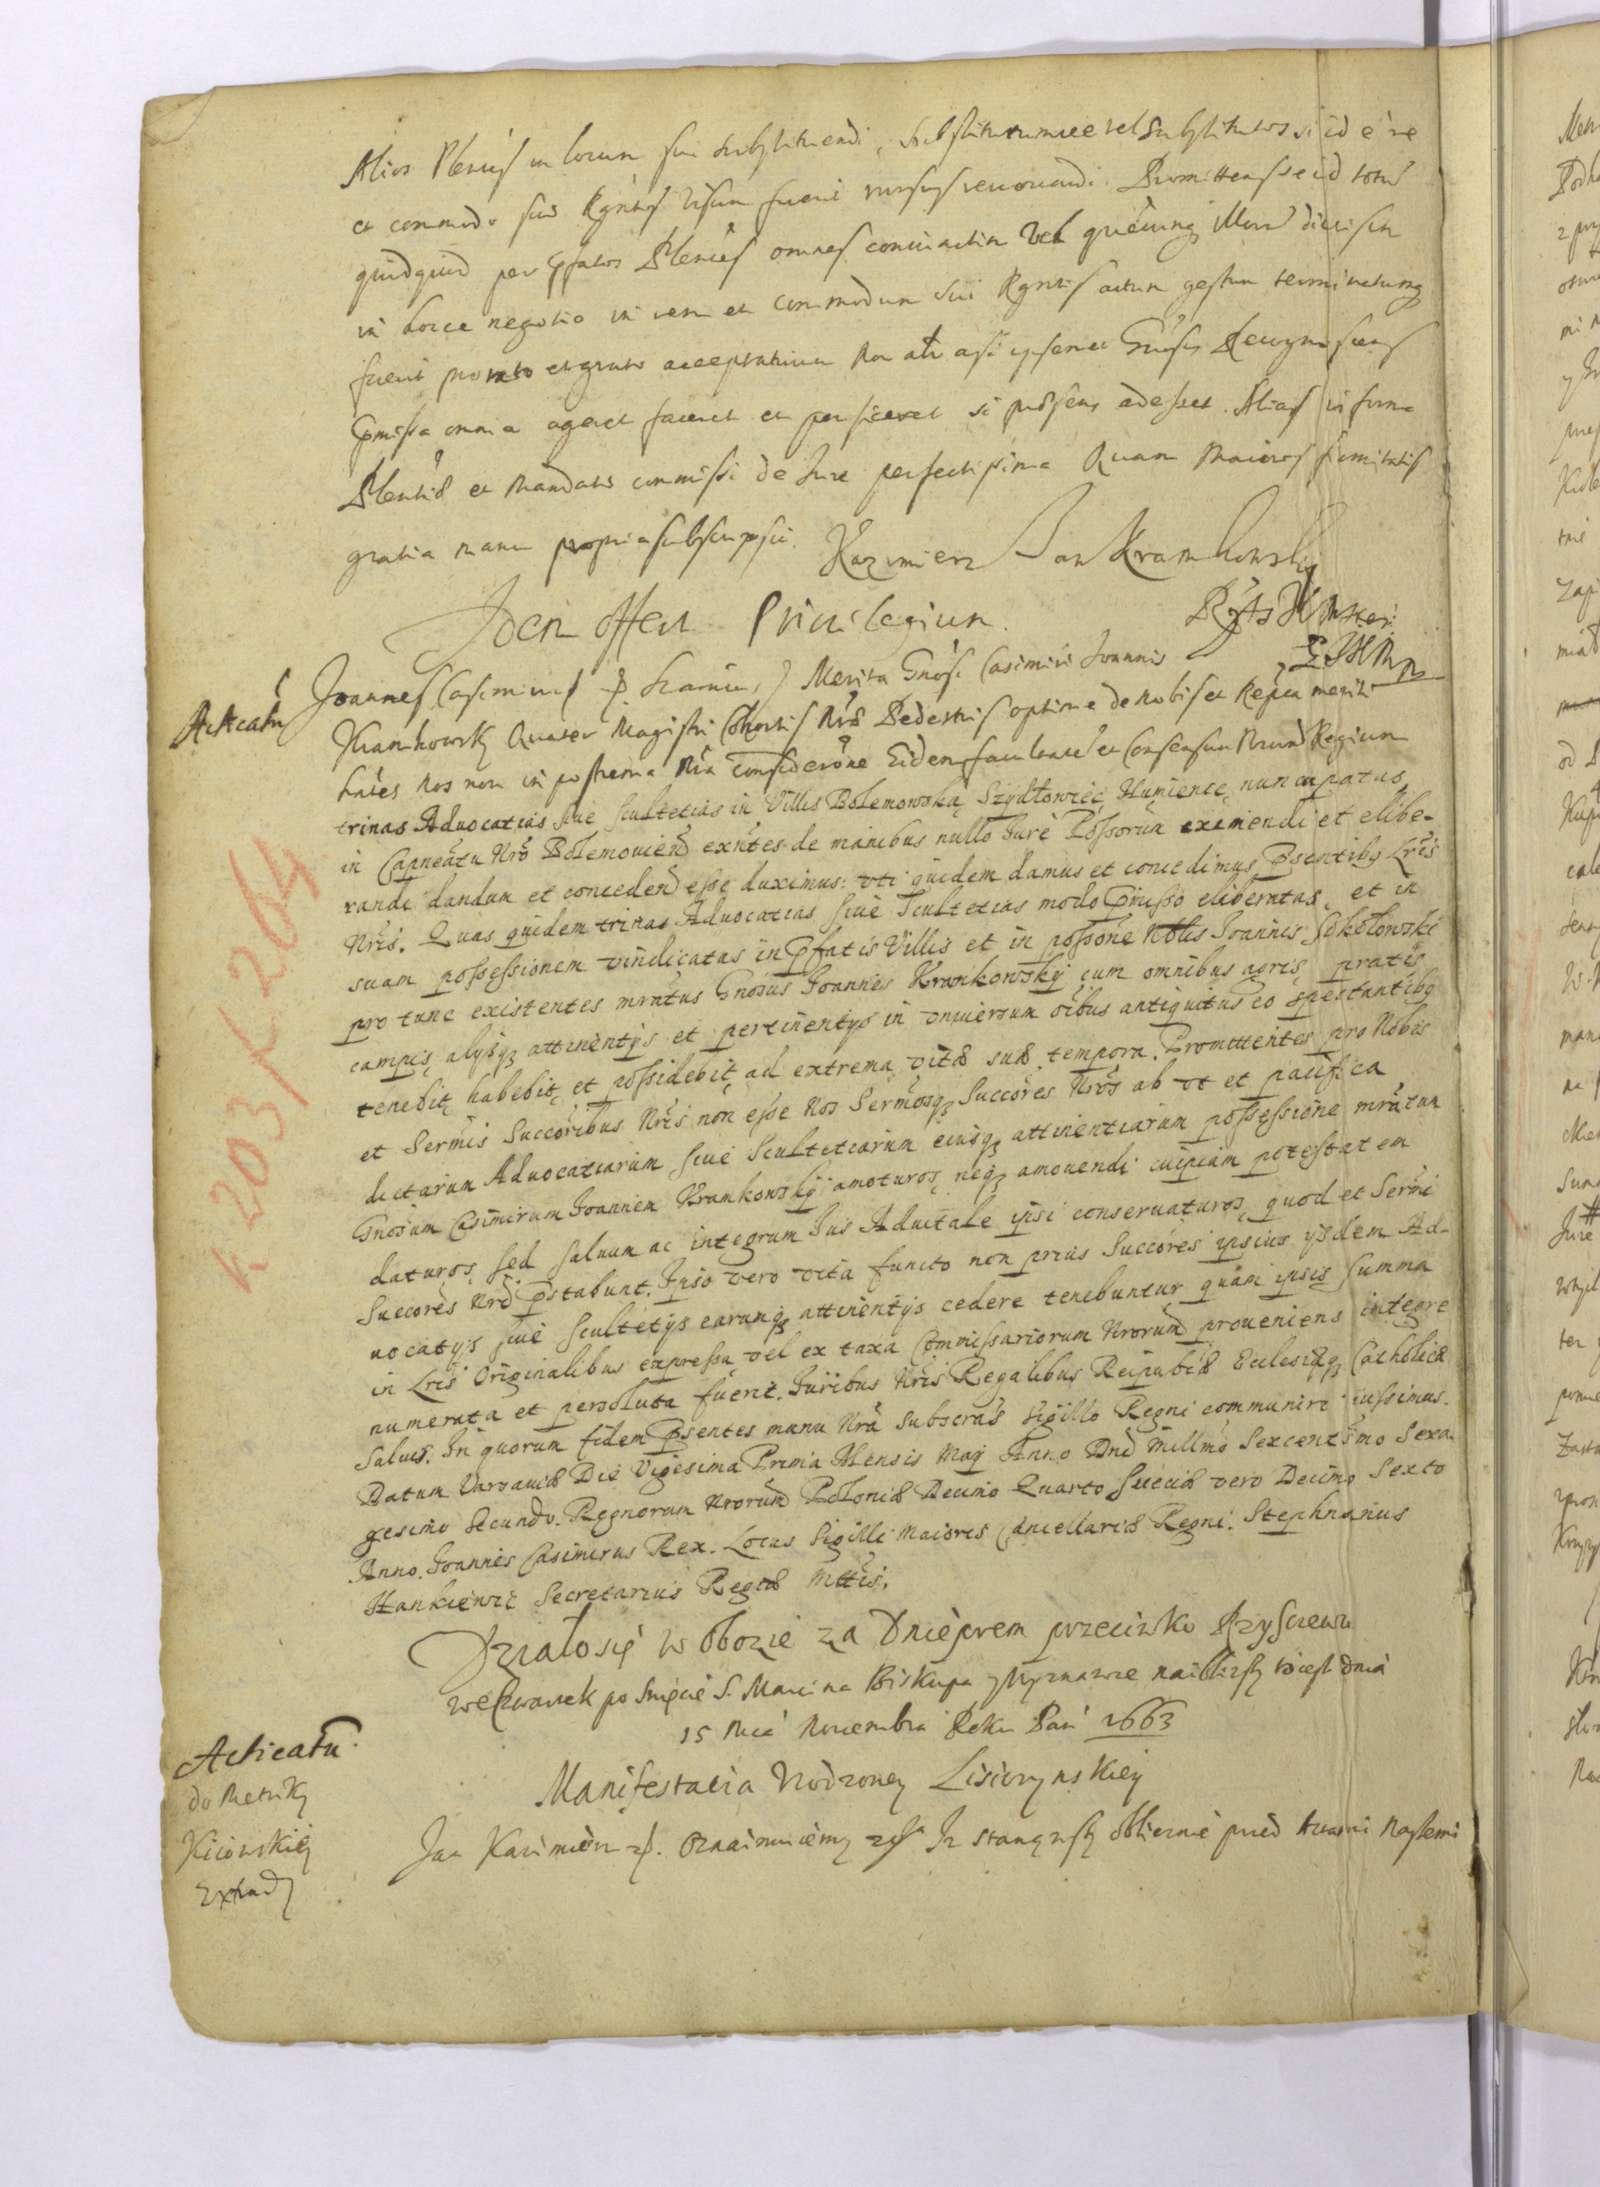 Alios Plenies in locum sui substituendi, substitutumve vel Substitutos si id è re
et commodo sui Rgntis visum fuerit rursus revocandi. Promittens se id totum
quidquid per Pfatos Plenies omnes coniunctim vel
in hocce negotio in rem et commodum sui Rgntis actum gestum terminatumq
fuerit pro rato et grato accepturum
Pmissa omnia ageret faceret et perficeret si pnsens adesset. Alias in forma
Plentis et Mandatis commissi de Jure perfectissima Quam Maioris firmitatis
gratia manu propria subscripsi. Kazimierz Jan Kramkowsky
Idem offert Privilegium.
Joannes Casimirus Merita Gnosi Casimiri Joannis
Acticatū
Kramkowsky Quater Magistri Cohortis Nrae Pedestris optime de nobis et Repca meriti
hntes nos non in postrema Nra consideröne Eidem facultate et Consensum Nrum Regium
trinas Advocatias sive scultetias in Villis Bolemowską, Szydłowiec, Humience, nuncupatus,
in Capneatu Nro Bolemovien exntes de manibus nullo Jure Possorum eximendi et elibe-
randi dandum et conceden esse duximus: uti quidem damus et concedimus Psentibq Lris
Nris. Quas quidem trinas Advocatias sive Scultetias modo Pmisso eliberatas, et in
suam possessionem vindicatas in Pfatis Villis et in possone Nobis Joannis Sokołowski
pro tunc existentes mratus Gnosus Joannes Kramkowskÿ cum omnibus agris, pratis
campis, alysq attinentys et pertinentys in universum oibus antiquitus eo spectantibq
tenebit, habebit, et possidebit, ad extrema vitæ suæ tempora. Promittentes pro Nobis
et Sermis Succoribus Nris non esse Nos Sermosq Succores Nros ab vt et pacifica
dictarum Advocatiarum sive Scultetiarum eiusq attinentiarum possessione mratum
Gnosum Casimirum Joannem Kramkowskÿ amoturos, neq amovendi cuipiam potestatem
daturos, sed salvum ac integrum Jus Advitale ipsi conservaturos, quod et Sermi
Succores Nri Pstabunt. Ipso vero vita functo non prius Succores ipsius ysdem Ad-
vocatys sive Scultetys earumq attinentys cedere tenebuntur quam ipsis summa
in Lris Originalibus expressa, vel ex taxa Commissariorum Nrorum proveniens integre
numerata et persoluta fuerit. Juribus Nris Regalibus Reipubæ Ecclesiæq Catholicæ
Salvis. In quorum fidem Psentes manu Nra subscras Sigillo Regni communire iussimus.
Datum Varsaviæ Die Vigesima Prima Mensis May Anno Dni Millmo Sexcentsmo Sexa-
gesimo Secundo. Regnorum Nrorum Poloniæ Decimo Quarto Sueciæ vero Decimo Sexto
Anno. Joannes Casimirus Rex. Locus Sigilli Maioris Cancellariæ Regni. Stephnanus
Hankiewic Secretarius Regiæ Mttis.
Działo się w Obozie za Dnieprem przeciwko Rzysczewu
we Czwartek po Święcie S. Marcina Biskupa y Wyznawce naibliższy to iest dnia
15 Mca Novembra Roku Pań 1663
Acticatū
do Metriky
Kiiowskiey
Manifestacia Urodzoney Lisiczynskiey
Jan Kazimierz Oznaimuiemy Iz stanąwszy oblicznie przed Aktami Naszemi
k 203 / k 204